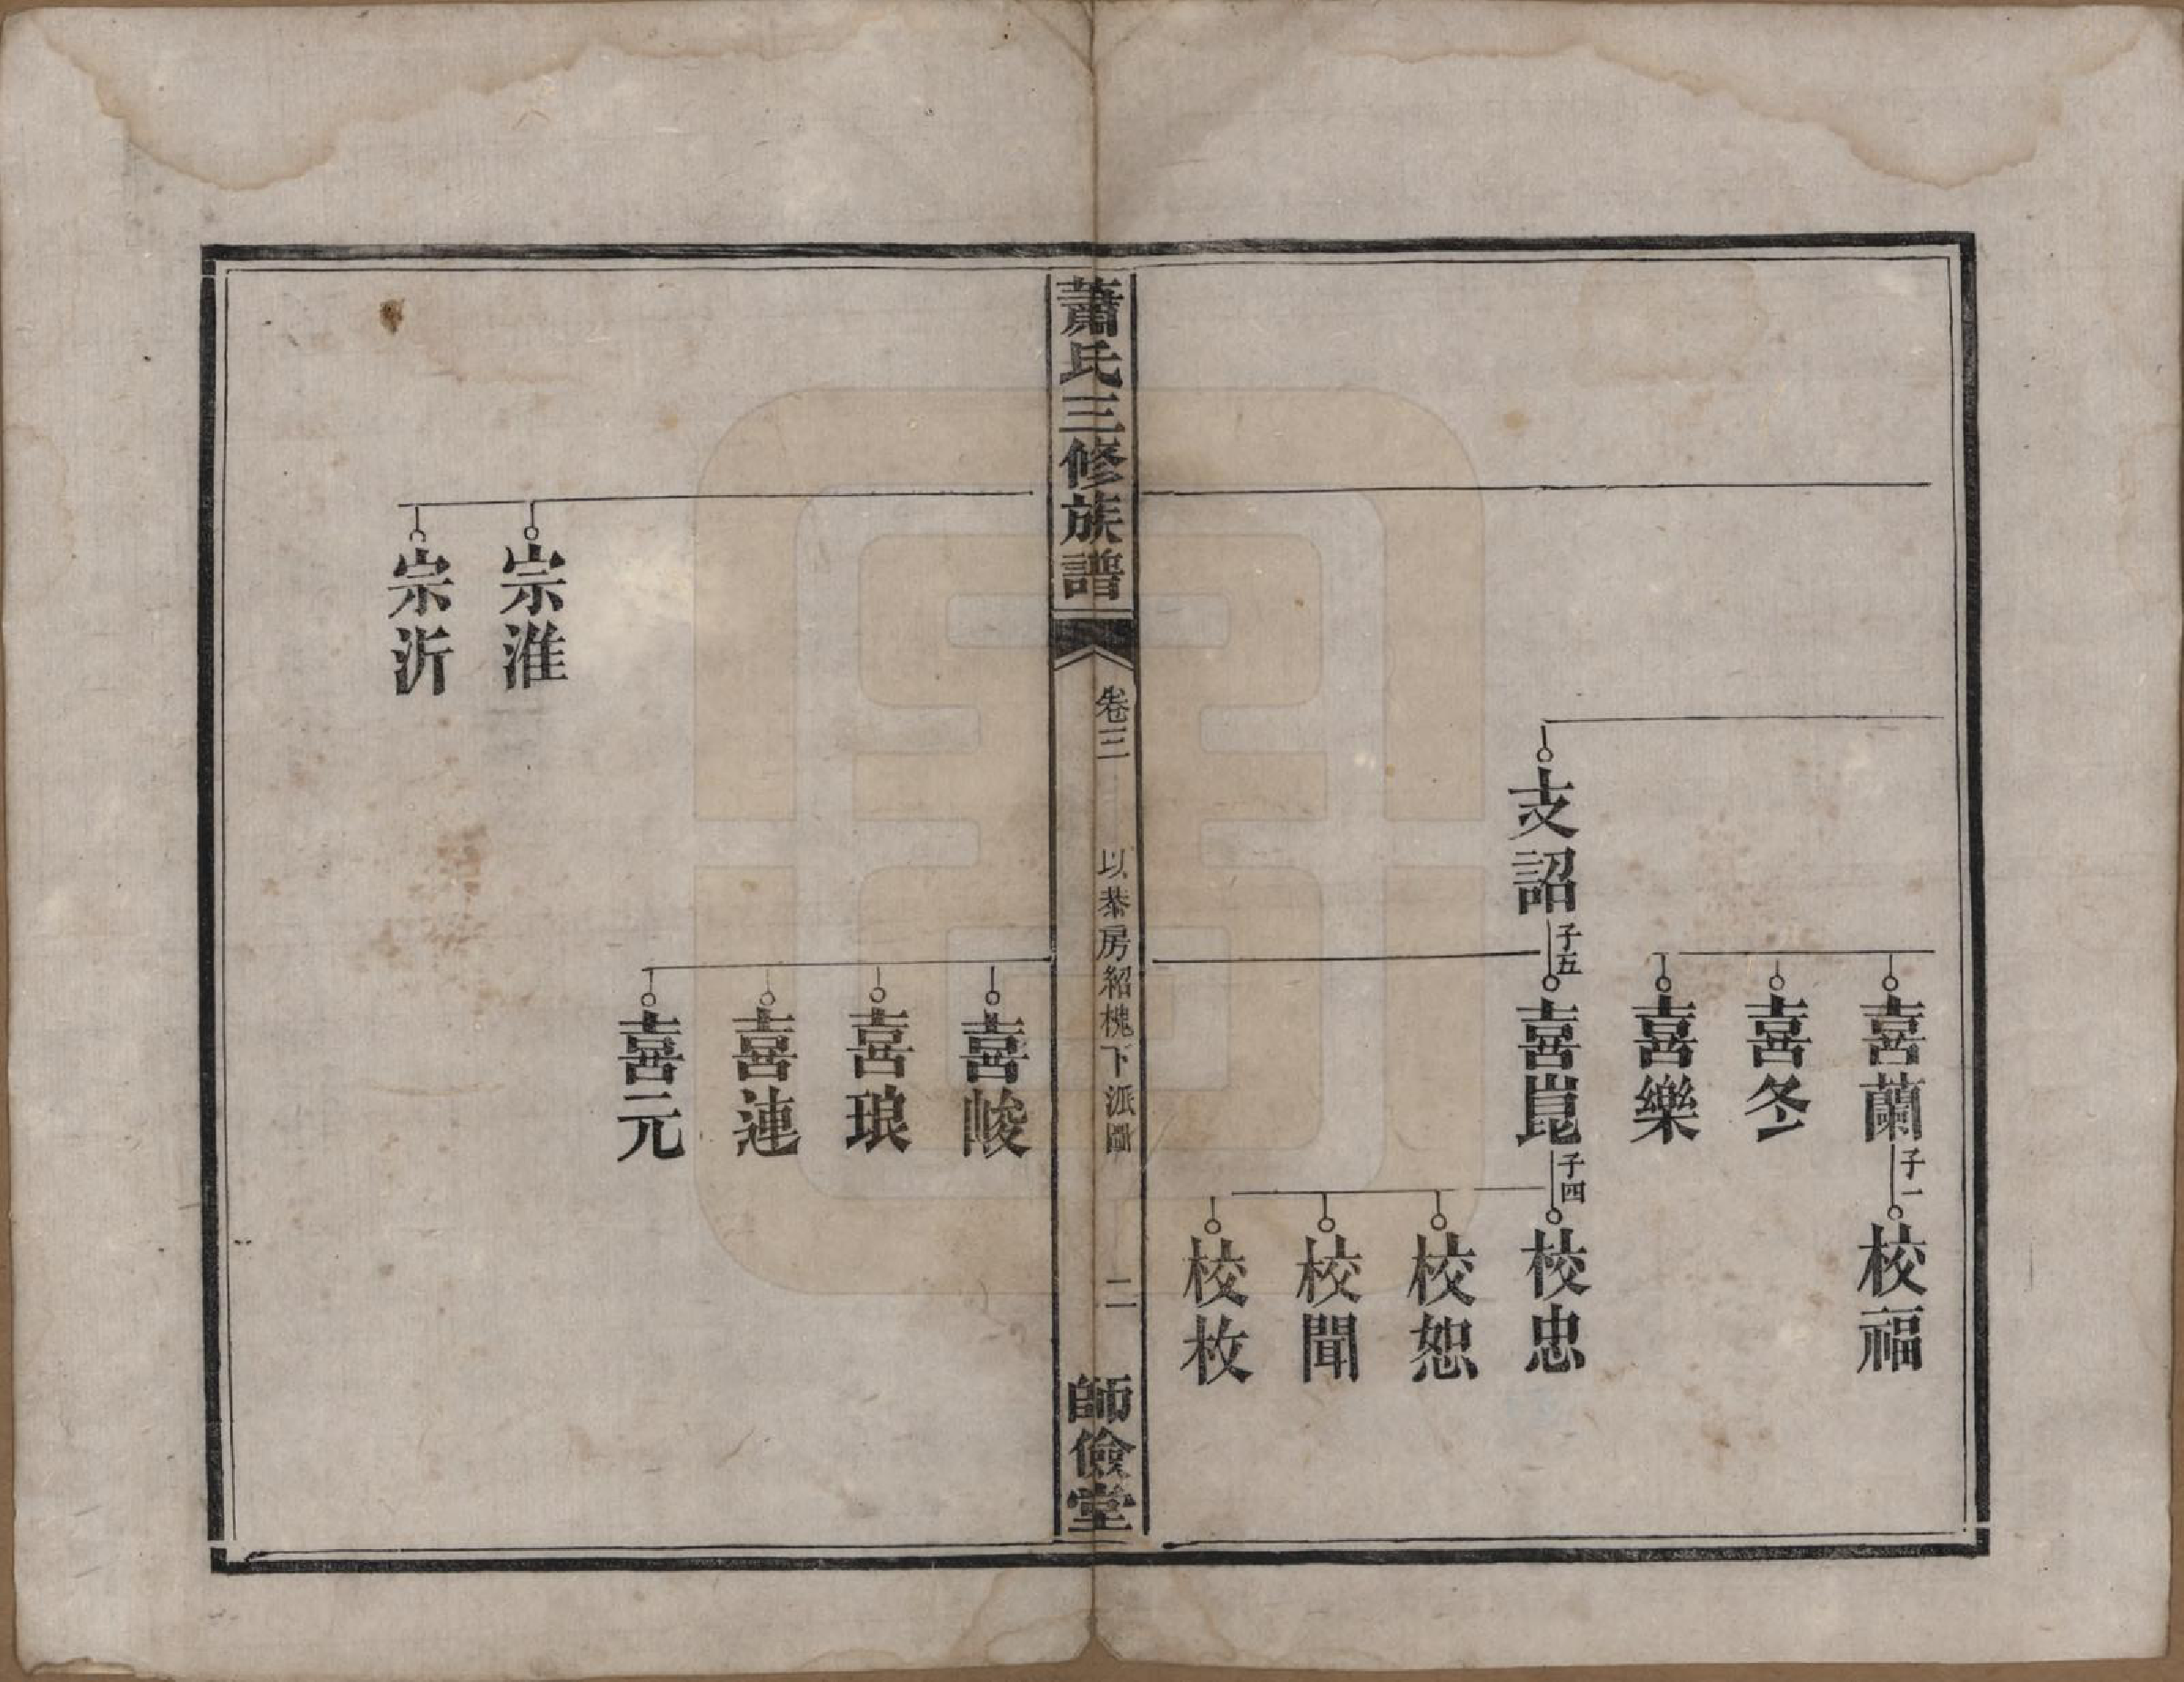 喜蘭
子一
校福
喜冬
喜樂
支詔
子五
喜崑
子四
校忠
校恕
校聞
校枚
蕭氏三修族譜
卷三
以恭房紹槐下派圖
二
師儉堂
喜峻
喜琅
喜連
喜元
宗淮
宗沂